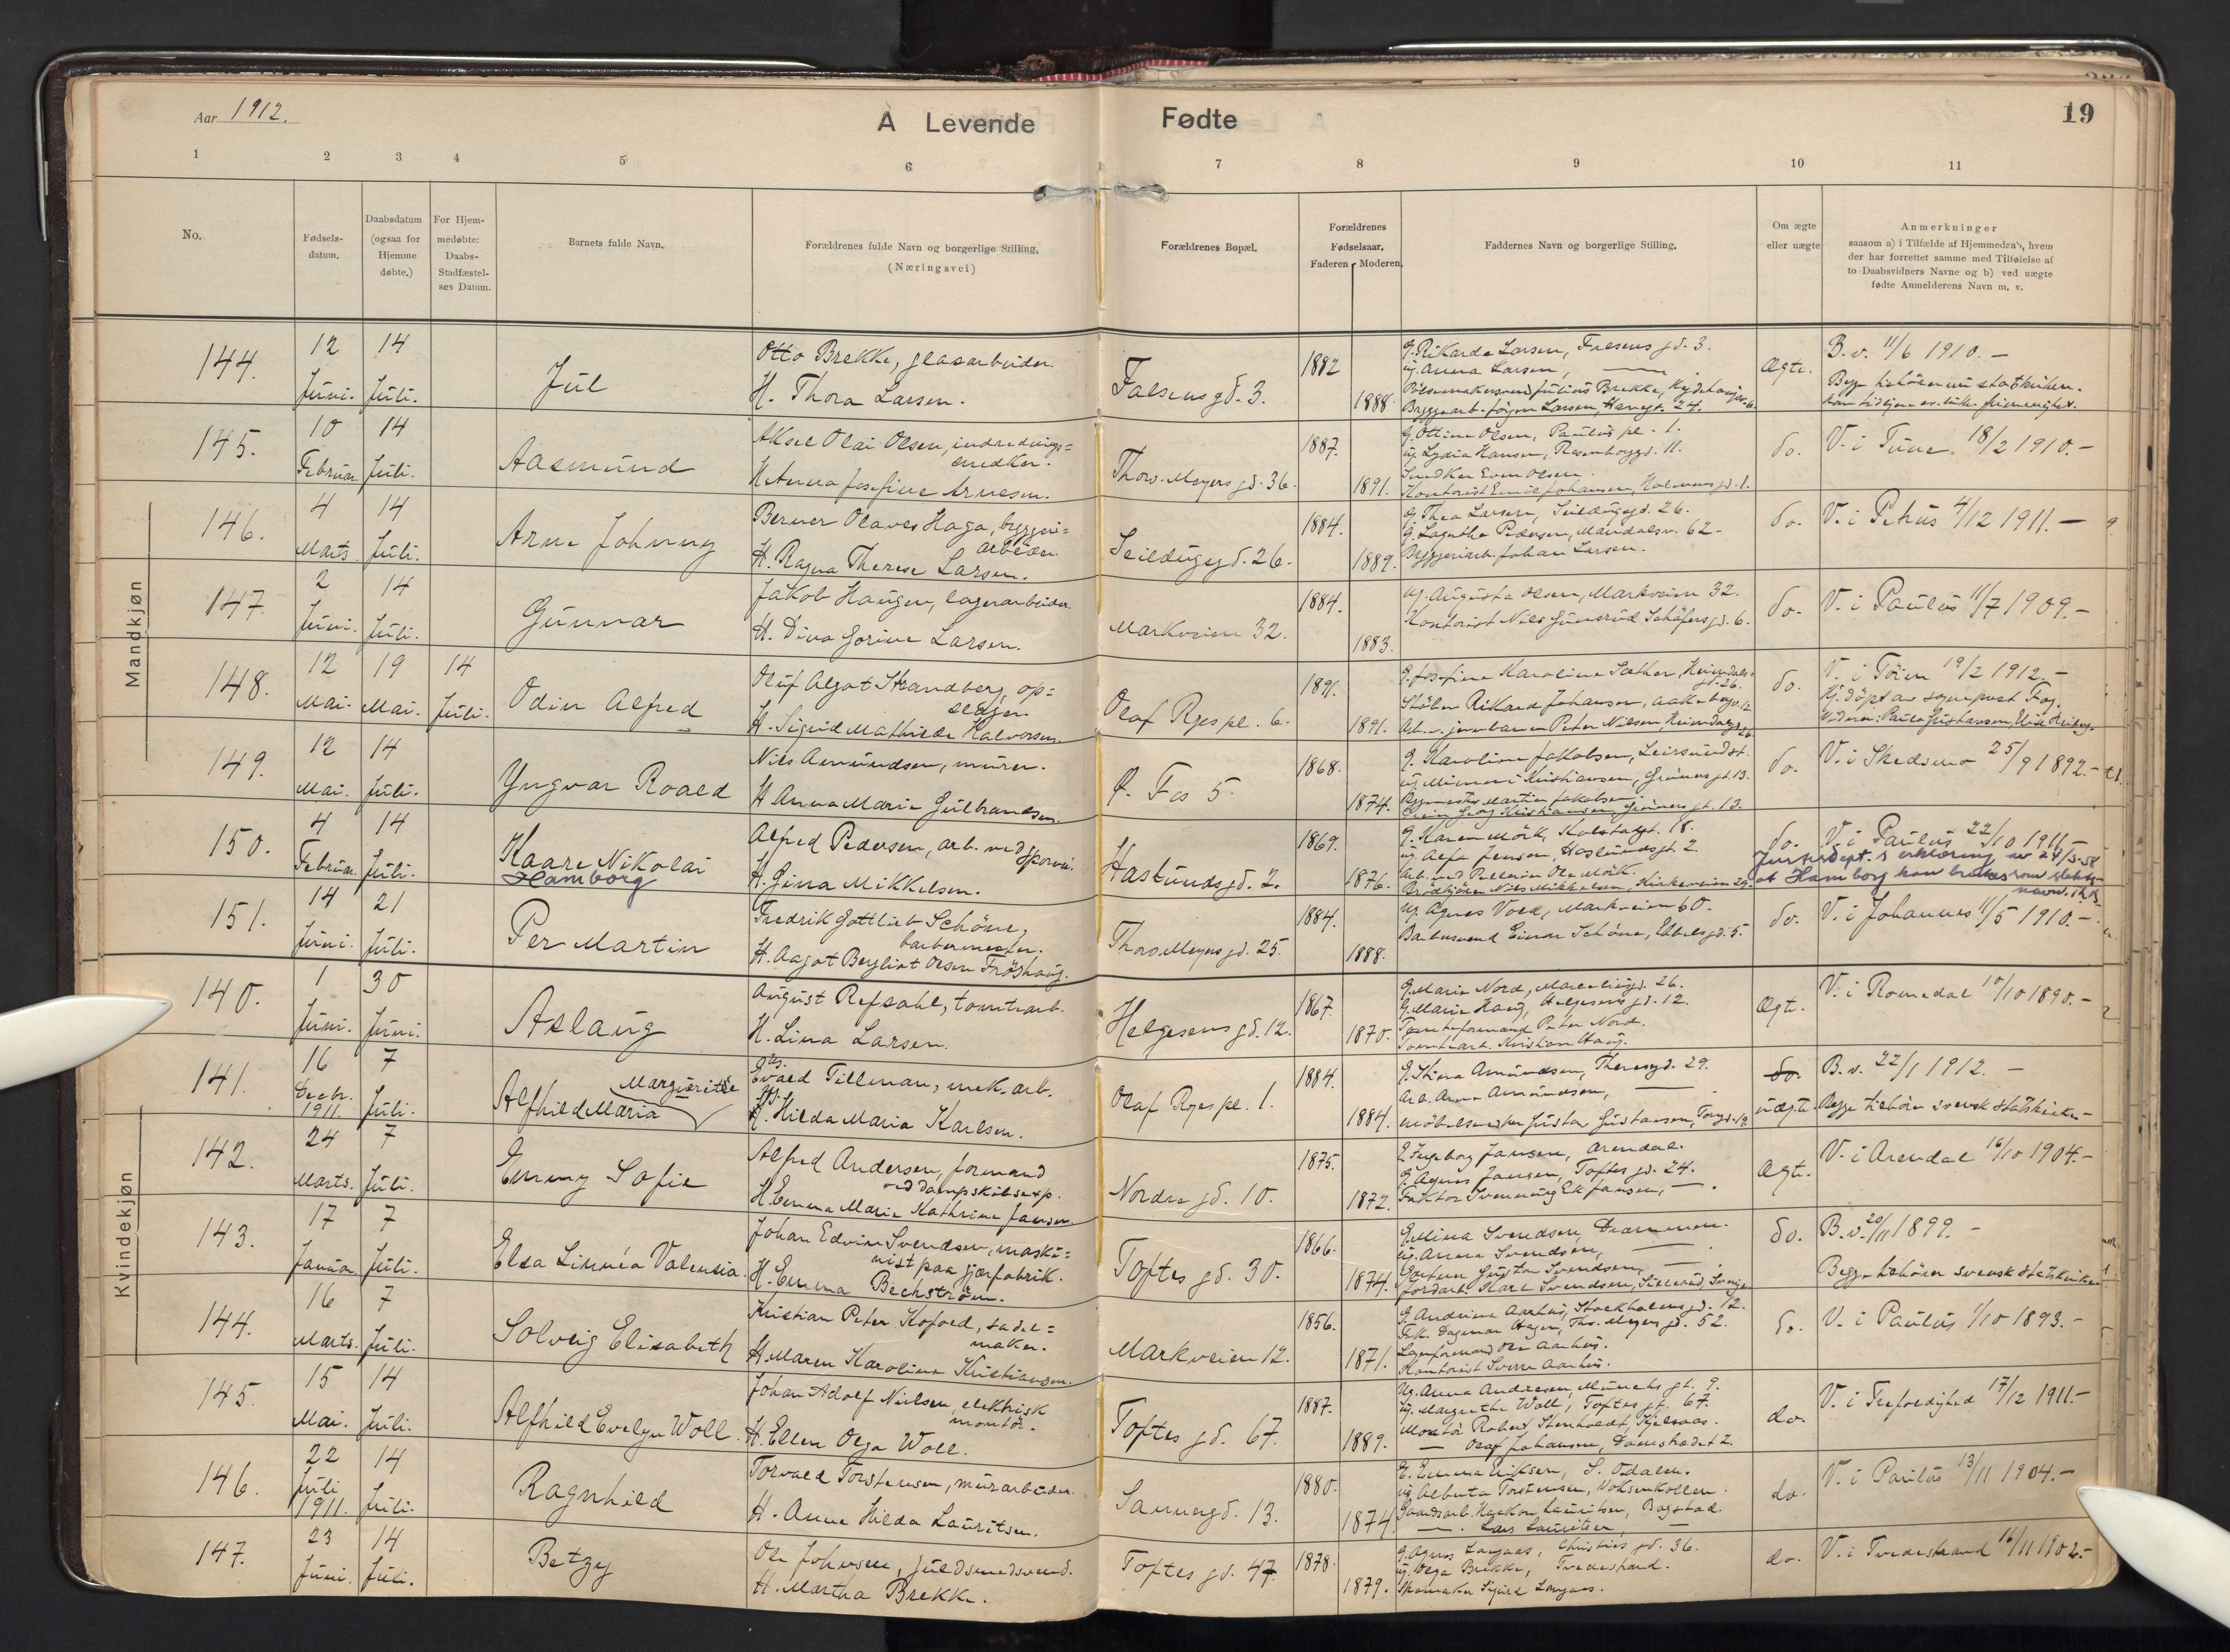 Aar 1912.
A Levende Fødte
19
1 2 3 4 5 6 7 8 9 10 11
No.
Fødsels-
datum.
Daabsdatum
(ogsaa for
Hjemme
døbte.)
For Hjem-
medøbte:
Daabs-
Stadfæstel-
ses Datum.
Barnets fulde Navn.
Forældrenes fulde Navn og borgerlige Stilling.
(Næringsvei)
Forældrenes Bopæl.
Forældrenes
Fødselsaar.
Faderen Moderen.
Faddernes Navn og borgerlige Stilling.
Om ægte
eller uægte
Anmerkninger
saasom a) i Tilfælde af Hjemmedaab, hvem
der har forrettet samme med Tilføielse af
to Daabsvidners Navne og b) ved uægte
fødte Anmelderens Navn m. v.
Mandkjøn
144.
12 Juni.
14 Juli.
Jul
Otto Brekke, glasarbeider.
H. Thora Larsen.
Falsensgd. 3.
1882
1888.
G. Rikarda Larsen, Falsens gd. 3.
Ug. Anna Larsen,
Ægte.
B. v. 11/6 1910. —
145.
10 Februar
14 Juli.
Aasmund
Aksel Olai Olsen, indrednings=
snedker.
H. Anna Josefine Arnesen.
Thorv. Meyers gd. 36.
1887.
1891.
G. Ottine Olsen, Paulus pl. 1.
Ug. Lydia Hansen, Rosenborggd. 11.
Snedker Even Olsen.
Kontorist Emil Johansen, Holmens gd. 1.
do.
V. i Tune. 18/2 1910. —
146.
4 Marts
14 Juli.
Arne Johnny
Berner Olaves Haga, bryggeri=
arbeider.
H. Ragna Therese Larsen.
Seildugsgd. 26.
1884.
1889.
G. Thea Larsen, Seildugsgd. 26.
G. Lagertha Pedersen, Mandalsv. 62 —
Bryggeriarb. Johan Larsen.
do.
V. i Petrus 4/12 1911. —
147.
2 Juni.
14 Juli.
Gunnar
Jakob Haugen, lagerarbeider
H. Dina Gorine Larsen.
Markveien 32.
1884.
1883.
Ug. Augusta Olsen, Markveien 32.
Kontorist Nils Gunsrud Schäfersgd. 6.
do.
V. i Paulus 11/7 1909. —
148.
12 Mai.
19 Mai.
14 Juli.
Odin Alfred
Oluf Algot Strandberg, op=
seiljer.
H. Sigrid Mathilde Halvorsen.
Olaf Ryes pl. 6.
1891.
1891.
G. Josefine Karoline Sæther, Heimdals=
gd. 26.
Arb. v. jernbanen Peter Nilsen, Heimdalsgd. 26
do.
V. i Tøien 19/2 1912. —
149.
12 Mai.
14 Juli.
Yngvar Roald
Nils Amundsen, murer.
H. Anna Marie Gulbrandsen.
Ø. Fos 5.
1868.
1874.
G. Karoline Jakobsen, Leirsundst.
Ug. Minni Kristiansen, Grüners gt. 13.
do.
V. i Skedsmo 25/9 1892. —
150.
4 Februar
14 Juli.
Kaare Nikolai
Hamborg
Alfred Pedersen, arb. ved sporvei.
H. Gina Mikkelsen.
Haslunds gd. 2.
1869.
1876.
G. Karen Mørk, Kolstadgt. 18.
Ug. Alfa Jensen, Haslundsgt. 2.
do.
V. i Paulus 22/10 1911 —
Justisdept.s erklæring av 24/3-58
at Hamborg kan brukes som slekts-
navn.
151.
14 Juni.
21 Juli.
Per Martin
Fredrik Gottlieb Schöne,
barbermester.
H. Aagot Bergliot Olsen Frøshaug.
Thorv. Meyers gd. 25.
1884.
1888.
Ug. Agnes Vold, Markveien 60.
Barbersvend Einar Schöne, Ebbelsgd. 5.
do.
V. i Johannes 11/5 1910. —
Kvindekjøn
140.
1 Juni.
30 Juni.
Aslaug
August Refsahl, tomtearb.
H. Lina Larsen.
Helgesens gd. 12.
1867.
1870.
G. Marie Nord, 26.
G. Marie Haug, Helgesens gd. 12.
Tomteformand Peter Nord.
Tomtearb. Kristian Haug.
Ægte.
V. i Romedal 10/10 1890. —
141.
16 Decbr. 1911.
7 Juli.
Alfhild Maria Margueritte
Evald Tillman, mek. arb.
H. Hilda Maria Karlsen.
Olaf Ryes pl. 1.
1884.
1884.
G. Stina Amundsen, Theresgd. 29.
Arb. Arne Amundsen,
do.
uægte.
B. v. 22/1 1912. —
Begge tilhører svensk statskirke —
142.
24 Marts.
7 Juli.
Emmy Sofie
Alfred Andersen, formand
ved dampskibsexp.
H. Emma Marie Kathrine Jansen.
Nordre gd. 10.
1875.
1872.
E. Ingeborg Jansen, Arendal.
G. Agnes Jansen, Toftes gd. 24.
Ægt.
V. i Arendal 16/10 1904. —
143.
17 Januar
7 Juli.
Elsa Linnéa Valensia.
Johan Edvin Svendsen, maski=
nist paa gjærfabrik.
H. Emma Bechström.
Toftes gd. 30.
1866.
1874.
E. Mina Svendsen, Drammen.
Ug. Anna Svendsen,
do.
B. v. 20/11 1899. —
Begge tilhører svensk statskirke
144.
16 Marts.
7 Juli.
Solveig Elisabeth
Kristian Peter Kofoed, sadel=
maker.
H. Maren Karoline Kristiansen.
Markveien 12.
1856.
1871.
G. Andrine Aarhus, Stockholmsgd. 12.
Frk. Dagmar Hagen, Thv. Meyers gd. 52.
Lagerformand Ole Aarhus.
Kontorist Sverre Aarhus.
do.
V. i Paulus 1/10 1893. —
145.
15 Mai.
14 Juli.
Alfhild Evelyn Woll.
Johan Adolf Nielsen, elektrisk
montör.
H. Ellen Olga Woll.
Toftes gd. 67.
1887.
1889.
Ug. Anna Andresen, Munchs gt. 9.
Ug. Margrethe Woll, Toftes gt. 67.
Montör Robert Stenholdt, Kjelsaas.
— Olaf Johansen, Damstrædet 2.
do.
V. i Trefoldighed 17/12 1911. —
146.
22 Juli 1911.
14 Juli.
Ragnhild
Torvald Torstensen, murarbeider.
H. Anne Hilda Lauritsen.
Sannergd. 13.
1880.
1874
E. Emma Eriksen, S. Odalen.
Ug. Alberta Torstensen, Voksenkollen.
Gaardsarb. Haakon Lauritsen, Bogstad.
— Lars Lauritsen, —
do.
V. i Paulus 13/11 1904. —
147.
23 Juni.
14 Juli.
Betzy
Ole Johnsen, guldsmedsvend.
H. Martha Brekke.
Toftes gd. 47.
1878.
1879.
G. Agnes Langaas, Christies gd. 36.
Ug. Olga Brekke, Tvedestrand.
Skomaker Sigurd Langaas.
do.
V. i Tvedestrand 16/11 1902. —